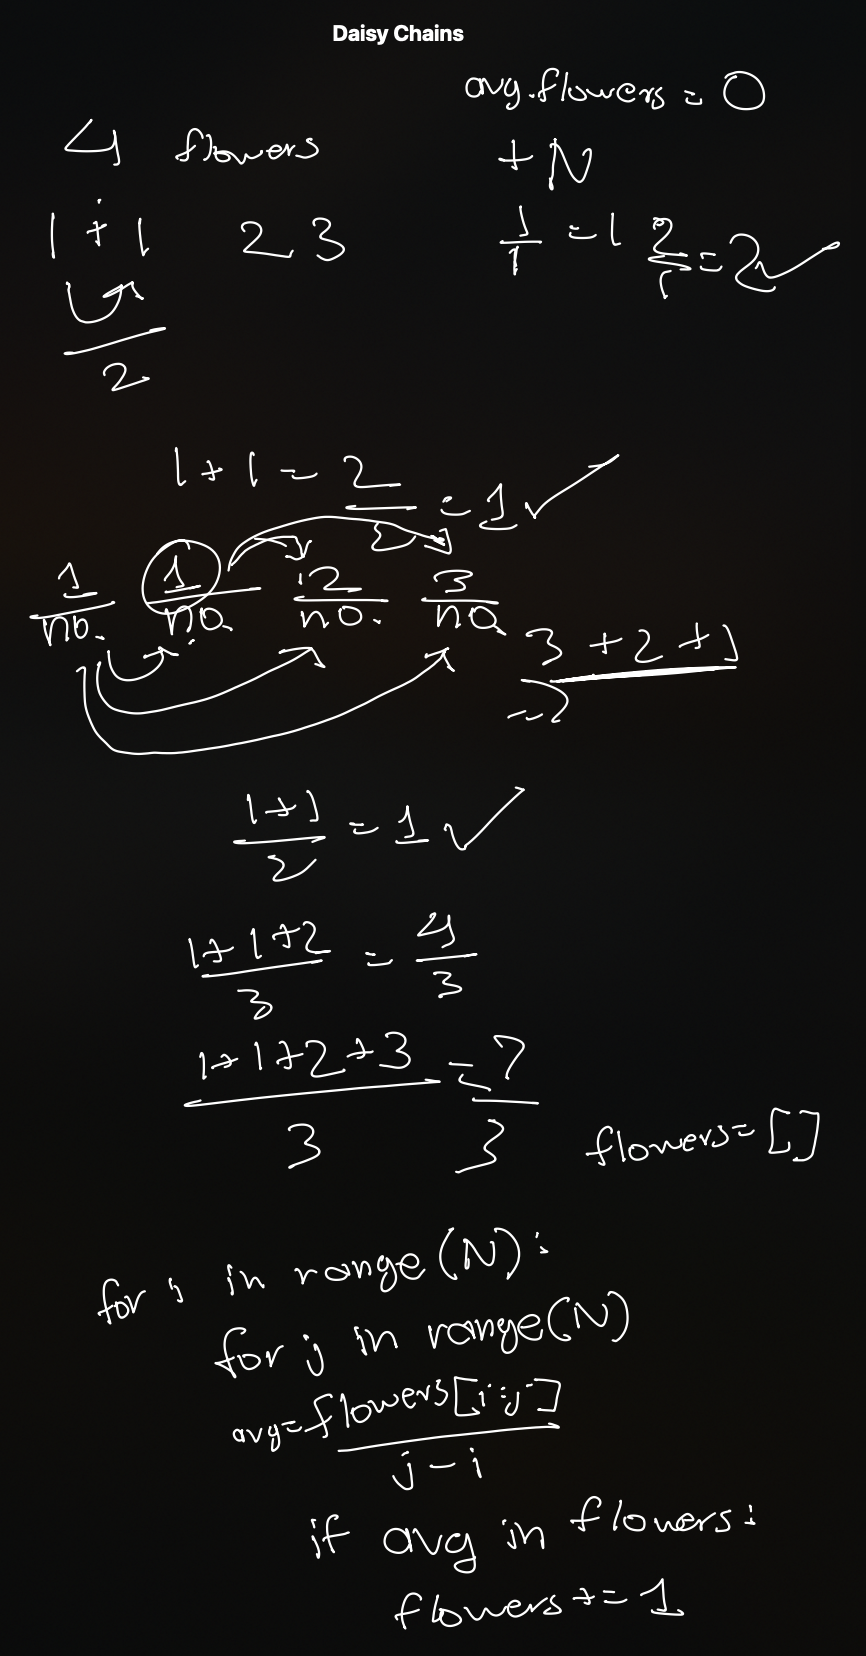 Daisy Chains
avg.flowers = 0
4 flowers
+ N
1 + 1 2 3
1/1 = 1 2/1 = 2 ✓
2
1 + 1 = 2/2 = 1 ✓
1/no. 1/no. 2/no. 3/no
3 + 2 + 1
1+1/2 = 1 ✓
1+1+2/3 = 4/3
1+1+2+3/3 = 7/3
flowers = []
for i in range(N):
for j in range(N)
avg = flowers[i:j]
j - i
if avg in flowers:
flowers += 1